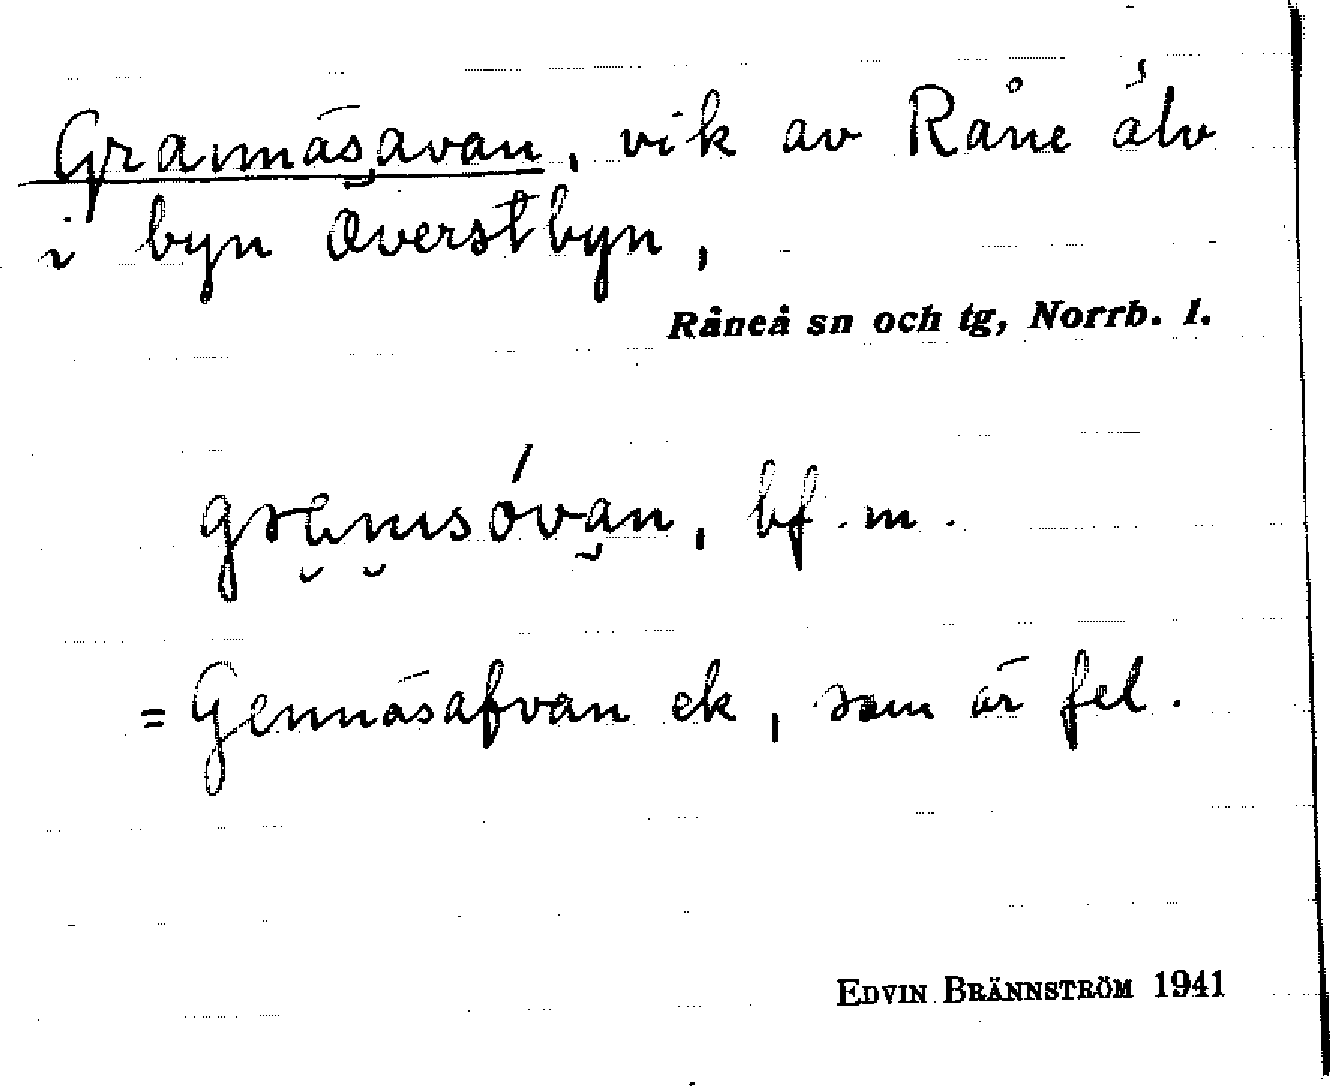 Grannäsavan, vik av Råne älv
i byn Överstbyn,
Råneå sn och tg, Norrb. l.
bf. m.
= Gennäsafvan ek, som är fel.
EDVIN BRÄNNSTRÖM 1941